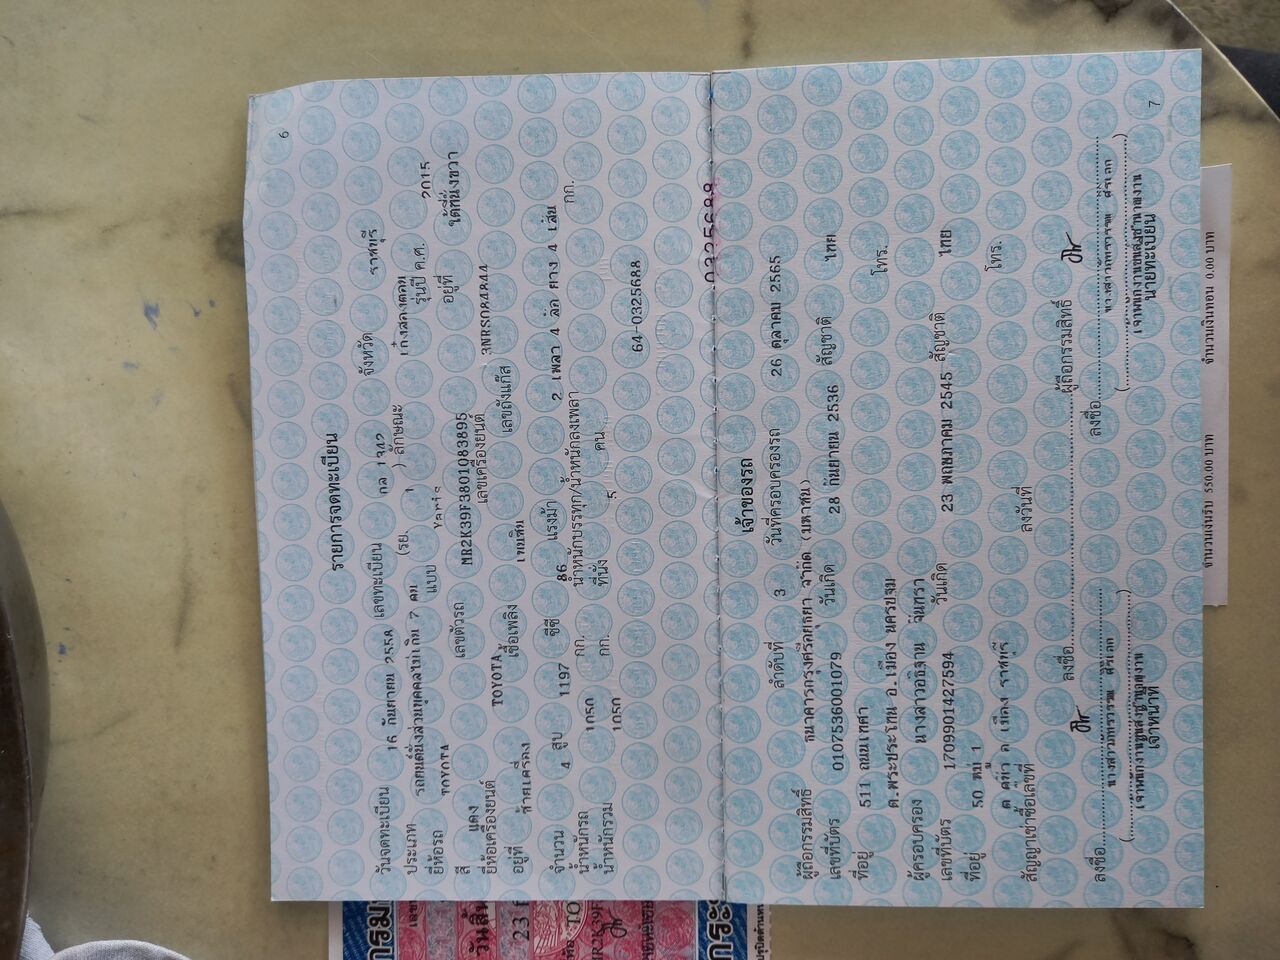 6
รายการจดทะเบียน
วันจดทะเบียน 16 กันยายน 2558 เลขทะเบียน กล 1342 จังหวัด ราชบุรี
ประเภท รถยนต์นั่งส่วนบุคคลไม่เกิน 7 คน (รย. 1 ) ลักษณะ เก๋งสองตอน
ยี่ห้อรถ TOYOTA แบบ Yaris รุ่นปี ค.ศ. 2015
สี แดง เลขตัวรถ MR2K39F3801083895 อยู่ที่ ใต้ที่นั่งขวา
ยี่ห้อเครื่องยนต์ TOYOTA เลขเครื่องยนต์ 3NRS084844
อยู่ที่ ซ้ายเครื่อง เชื้อเพลิง เบนซิน เลขถังแก๊ส
จำนวน 4 สูบ 1197 ซีซี 86 แรงม้า 2 เพลา 4 ล้อ ยาง 4 เส้น
น้ำหนักรถ 1050 กก. น้ำหนักบรรทุก/น้ำหนักลงเพลา กก.
น้ำหนักรวม 1050 กก. ที่นั่ง 5 คน
64-0325688
0325688
เจ้าของรถ
ลำดับที่ 3 วันที่ครอบครองรถ 26 ตุลาคม 2565
ผู้ถือกรรมสิทธิ์ ธนาคารกรุงศรีอยุธยา จำกัด (มหาชน)
เลขที่บัตร 0107536001079 วันเกิด 28 กันยายน 2536 สัญชาติ ไทย
ที่อยู่ 511 ถนนเทศา โทร.
ต.พระประโทน อ.เมือง นครปฐม
ผู้ครอบครอง นางสาวอธิฐาน จันทรา
เลขที่บัตร 1709901427594 วันเกิด 23 พฤษภาคม 2545 สัญชาติ ไทย
ที่อยู่ 50 หมู่ 1 โทร.
ต คูบัว อ เมือง ราชบุรี
สัญญาเช่าซื้อเลขที่ ลงวันที่
ลงชื่อ ผู้ถือกรรมสิทธิ์
ลงชื่อ ลงชื่อ
เจ้าพนักงานขนส่งชำนาญงาน เจ้าพนักงานขนส่งชำนาญงาน
เจ้าหน้าที่ นายทะเบียน
7
จำนวนเงินรับ 550.00 บาท จำนวนเงินทอน 0.00 บาท